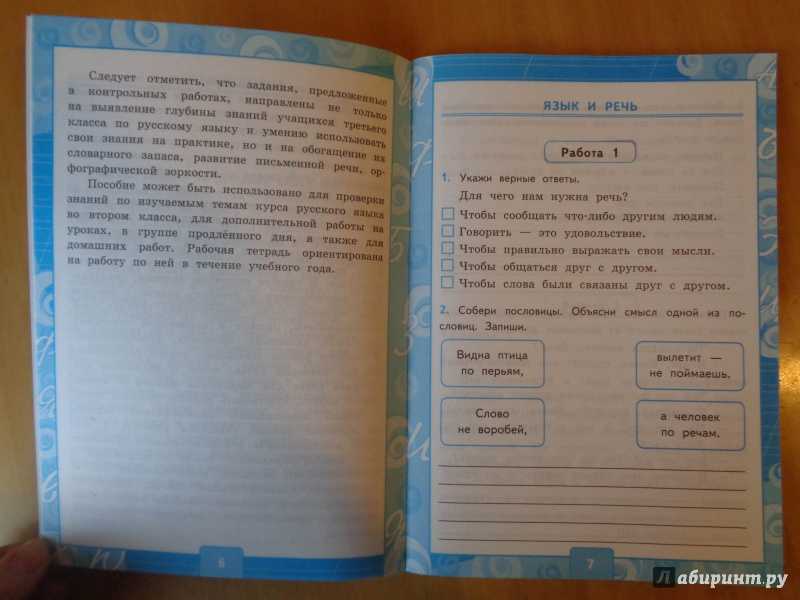 Следует отметить, что задания, предложенные
в контрольных работах, направлены не только
на выявление глубины знаний учащихся третьего
класса по русскому языку и умению использовать
свои знания на практике, но и на обогащение их
словарного запаса, развитие письменной речи, ор-
фографической зоркости.
Пособие может быть использовано для проверки
знаний по изучаемым темам курса русского языка
во втором класса, для дополнительной работы на
уроках, в группе продлённого дня, а также для
домашних работ. Рабочая тетрадь ориентирована
на работу по ней в течение учебного года.
6
ЯЗЫК И РЕЧЬ
Работа 1
1. Укажи верные ответы.
Для чего нам нужна речь?
Чтобы сообщать что-либо другим людям.
Говорить — это удовольствие.
Чтобы правильно выражать свои мысли.
Чтобы общаться друг с другом.
Чтобы слова были связаны друг с другом.
2. Собери пословицы. Объясни смысл одной из по-
словиц. Запиши.
Видна птица
по перьям,
вылетит —
не поймаешь.
Слово
не воробей,
а человек
по речам.
7
Лабиринт.ру